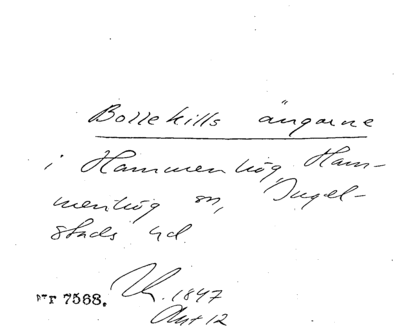 Borrekills ängarne
i Hammenhög, Ham-
menhög sn, Ingel-
stads hd.
7568. 1847
Akt 12